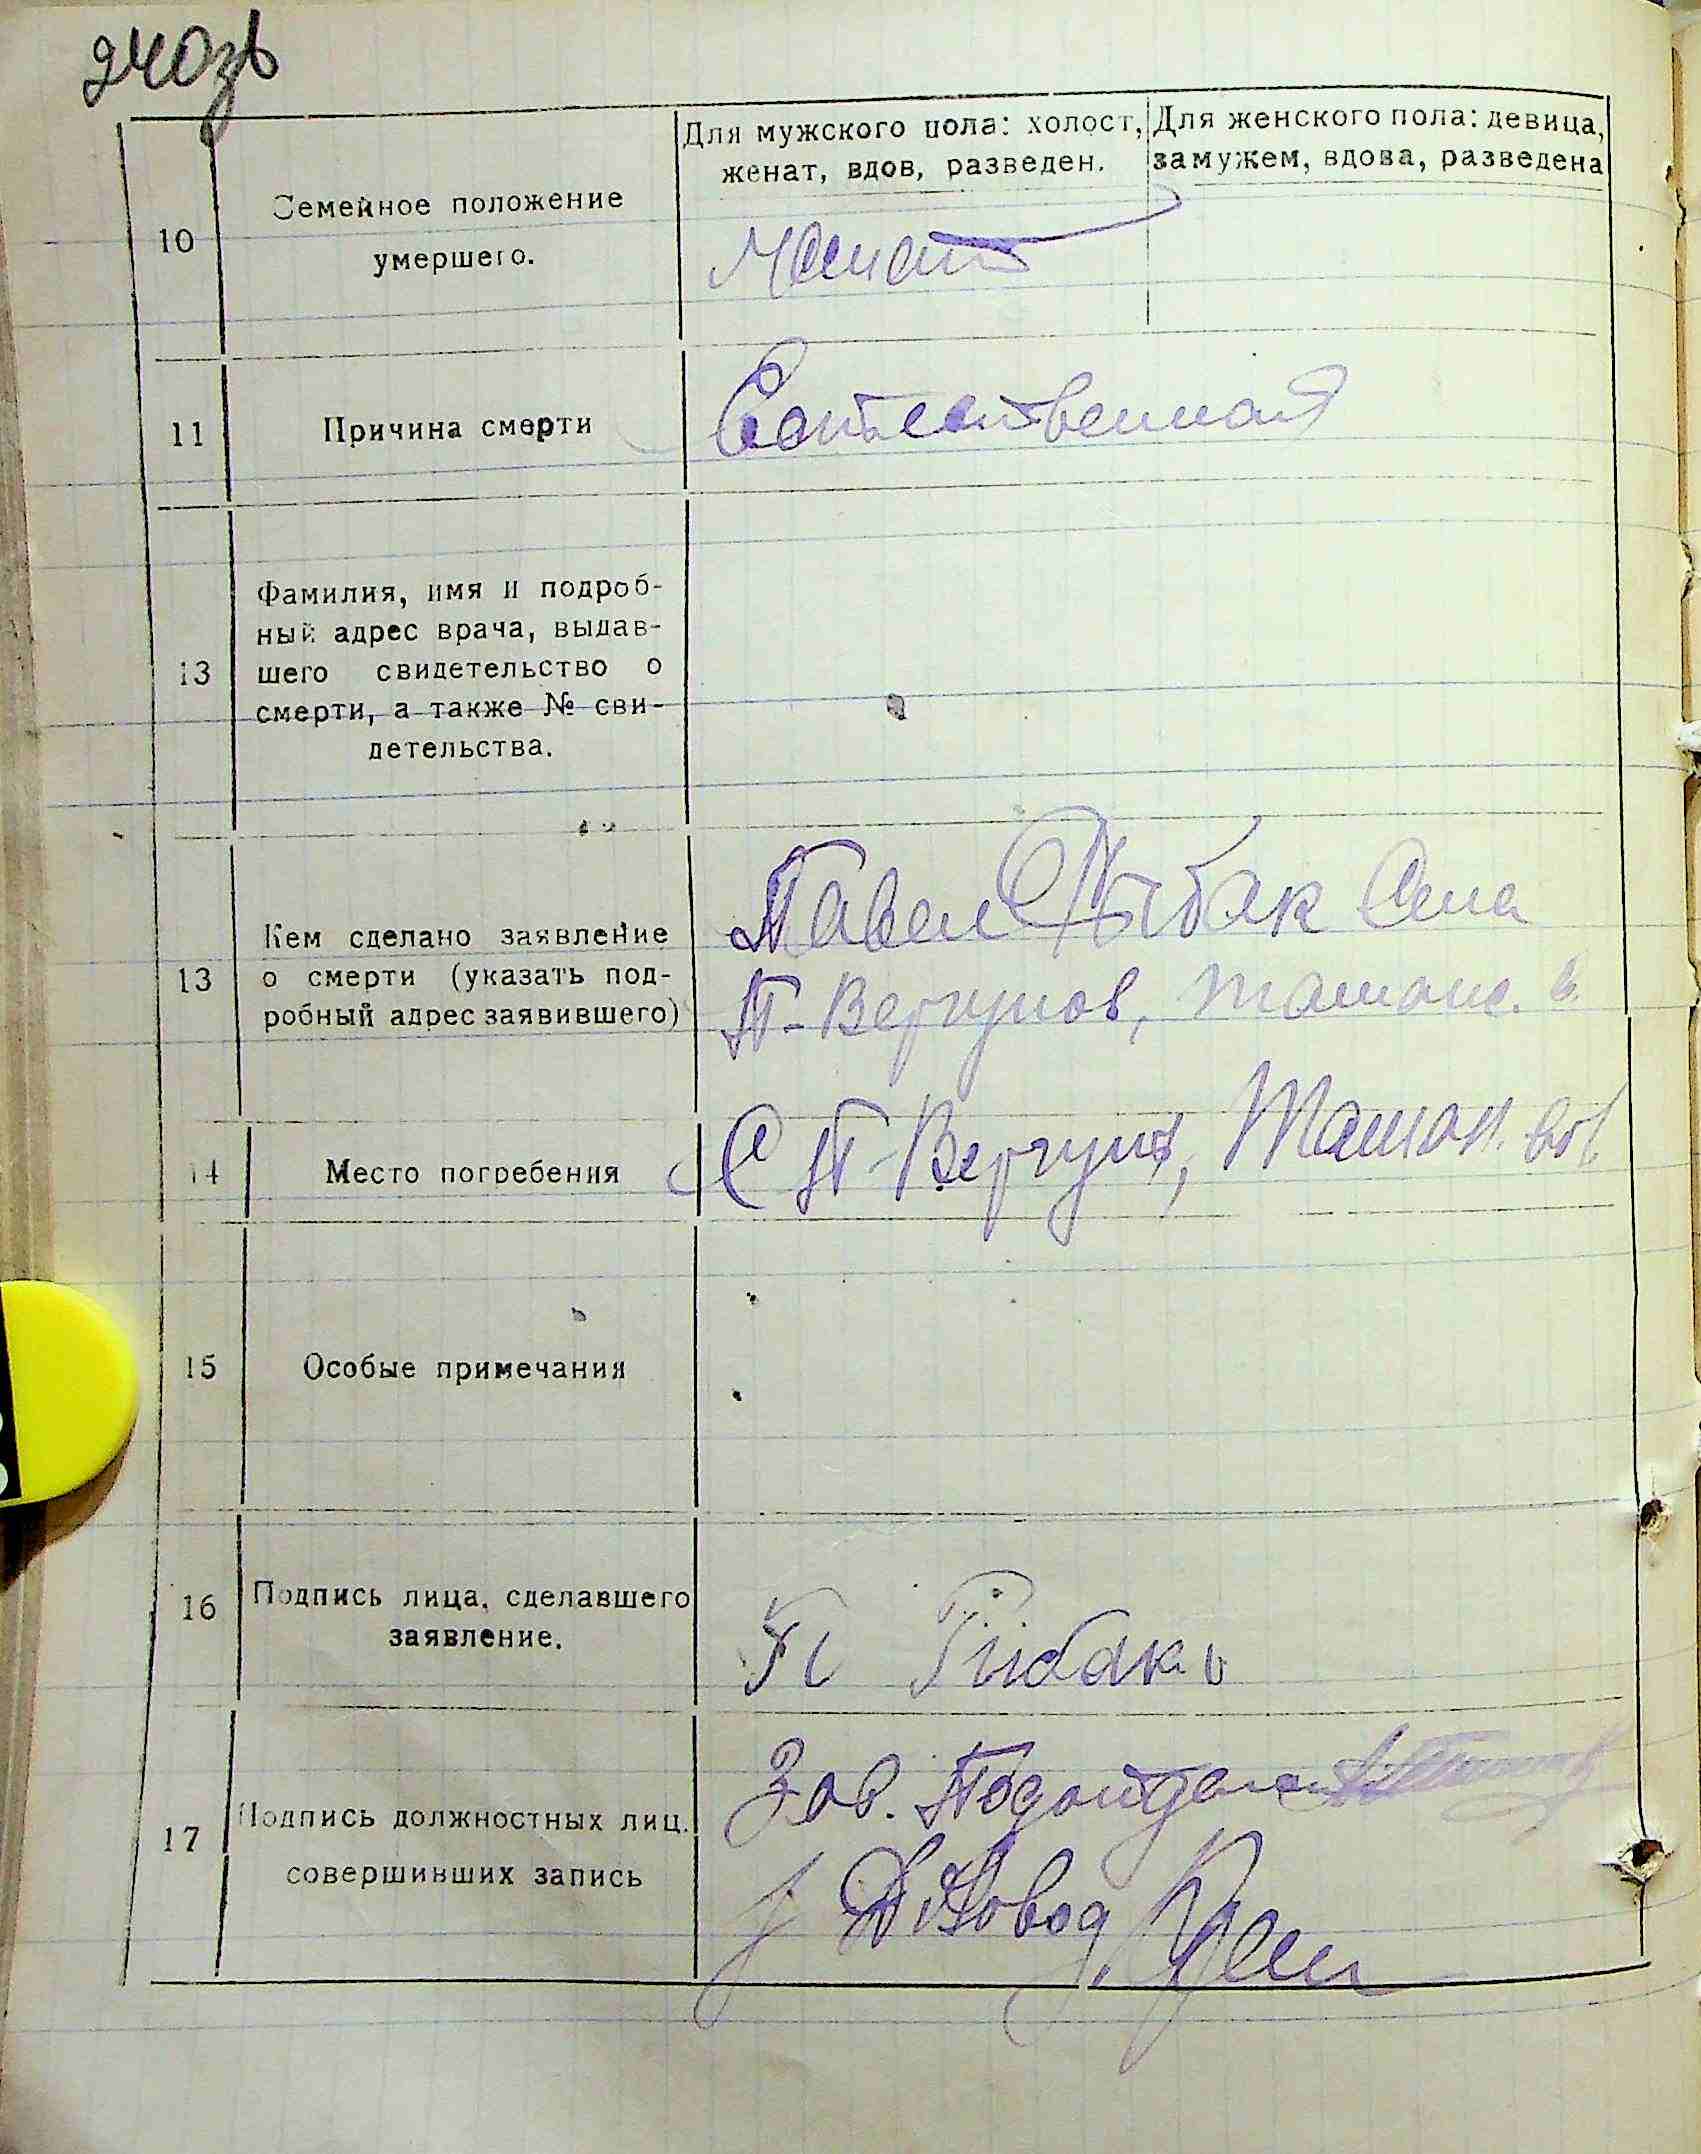 240зв
Для мужского пола: холост,
женат, вдов, разведен.
Для женского пола: девица,
замужем, вдова, разведена
10
Семейное положение
умершего.
11
Причина смерти
Естественная
13
Фамилия, имя и подроб-
ный адрес врача, выдав-
шего свидетельство о
смерти, а также № сви-
детельства.
13
Кем сделано заявление
о смерти (указать под-
робный адрес заявившего)
Павел Рыбак Села
П-Вергунов, Ташанс.
14
Место погребения
С П-Вергуны, Ташан. вол
15
Особые примечания
16
Подпись лица, сделавшего
заявление.
П Рибак
17
Подпись должностных лиц.
совершивших запись
Зав. Подотдела
Деловод,